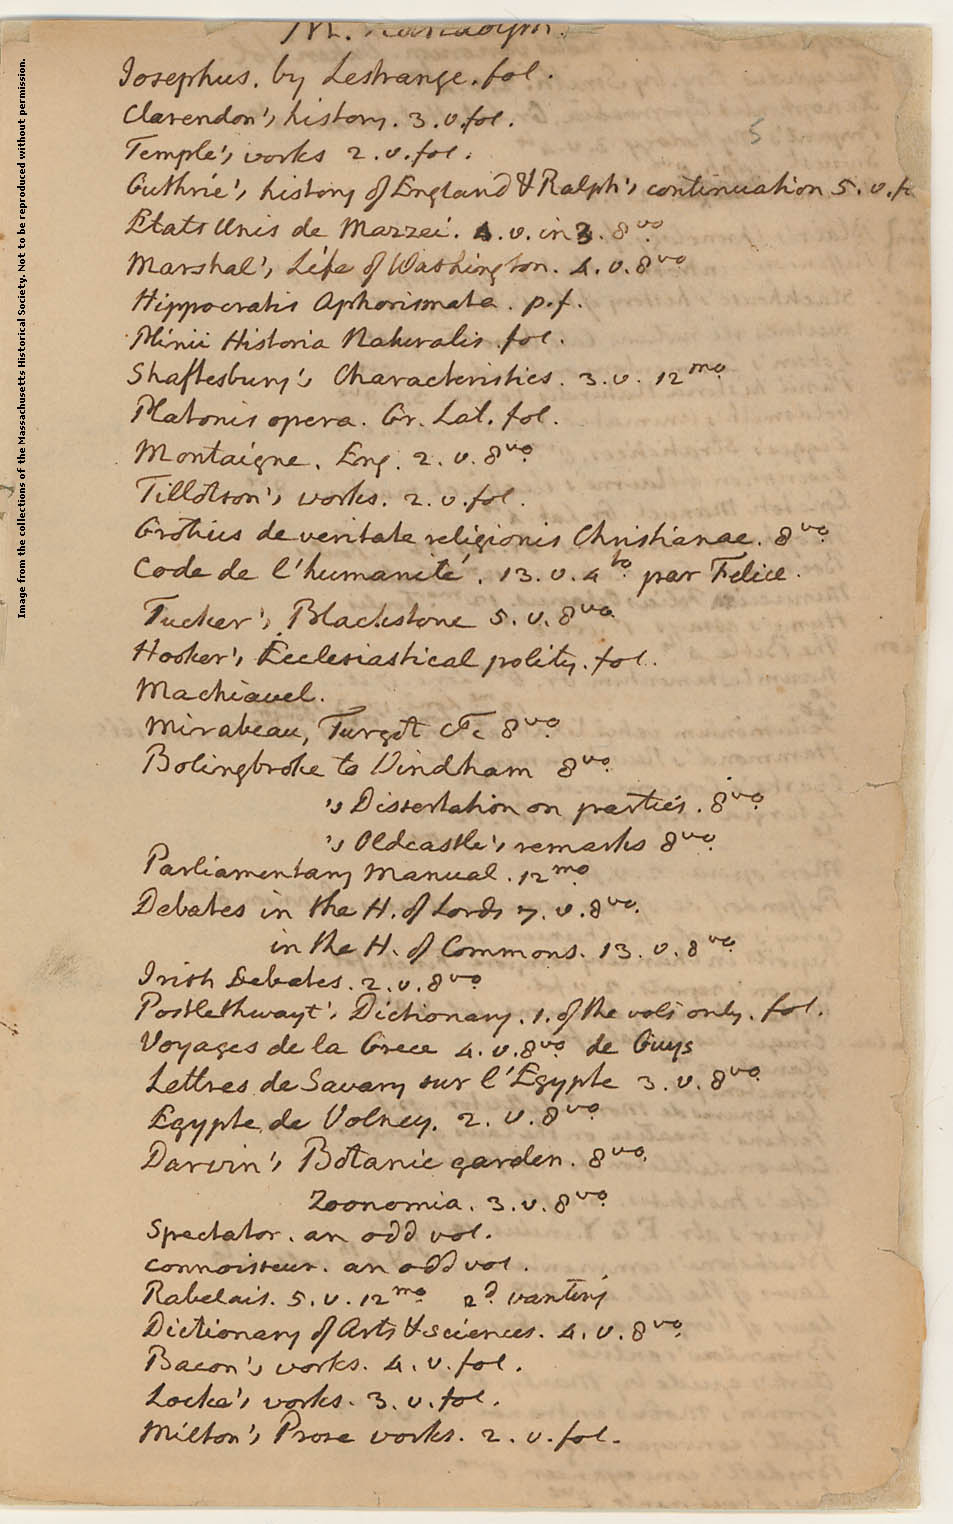 M. Randolph.
Josephus. by Lestrange. fol.
Clarendon's history. 3. v. fol.
5
Temple's works 2. v. fol.
Guthrie's history of England & Ralph's continuation 5. v. fo
Etats Unis de Mazzei. 4. v. in 3. 8vo
Marshal's Life of Washington. 4. v. 8vo
Hippocratis Aphorismata. p. f.
Plinii Historia Naturalis. fol.
Shaftesbury's Characteristics. 3. v. 12mo
Platonis opera. Gr. Lat. fol.
Montaigne. Eng. 2. v. 8vo
Tillotson's works. 2. v. fol.
Grotius de veritate religionis Christianae. 8vo
Code de l'humanité. 13. v. 4to par Felice.
Tucker's Blackstone 5. v. 8vo.
Hooker's Ecclesiastical polity. fol.
Machiavel.
Mirabeau, Turgot &c 8vo
Bolingbroke to Windham 8vo.
's Dissertation on parties. 8vo
's Oldcastle's remarks 8vo.
Parliamentary Manual. 12mo
Debates in the H. of Lords 7. v. 8vo.
in the H. of Commons. 13. v. 8vo
Irish Debates. 2. v. 8vo
Postlethwayt's Dictionary. 1. of the vols only. fol.
Voyages de la Grece 4. v. 8vo de Guys
Lettres de Savary sur l'Egypte 3. v. 8vo.
Egypte de Volney. 2. v. 8vo
Darwin's Botanic garden. 8vo.
Zoonomia. 3. v. 8vo
Spectator. an odd vol.
Connoisseur. an odd vol.
Rabelais. 5. v. 12mo 2d wanting
Dictionary of Arts & sciences. 4. v. 8vo
Bacon's works. 4. v. fol.
Locke's works. 3. v. fol.
Milton's Prose works. 2. v. fol.
Image from the collections of the Massachusetts Historical Society. Not to be reproduced without permission.